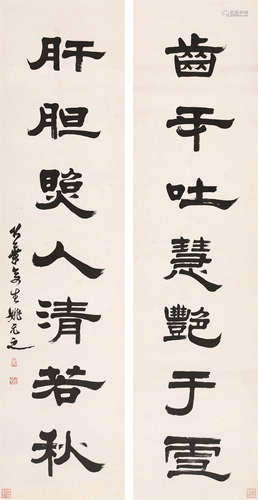 齒牙吐慧艷于雪
肝胆照人清若秋
竹葉亭生姚元之